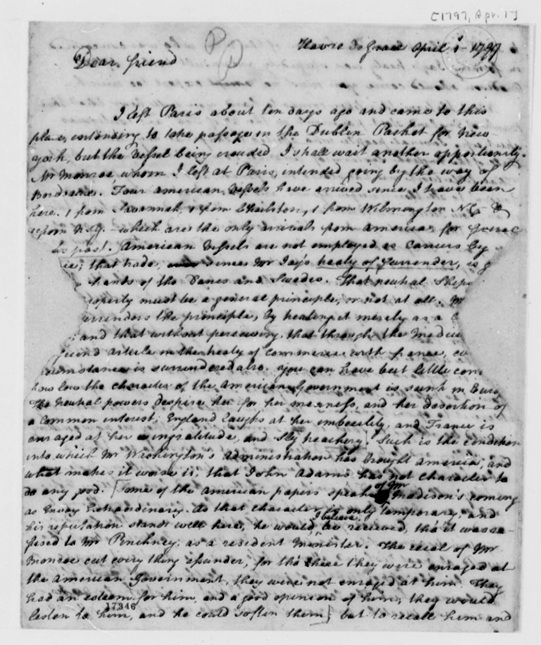 [1797, Apr. 1]
Havre de Grace April 1st 1797
Dear friend
I left Paris about ten days ago and came to this
place, intending to take passage in the Dublin Packet for New
york, but the Vessel being crouded I shall wait another opportunity.
Mr Monroe whom I left at Paris, intended going by the way of
Bordeaux. Four american Vessels have arrived since I have been
here, 1 from Savannah, 1 from Charleston, 1 from Wilmington NC &
1 from N.Y. which are the only arrivals from america, for
past. American Vessels are not employed as Carriers by
that trade, since Mr Jay's treaty of Surrender, is
hands of the Danes and Swedes. That neutral Ships
property must be a general principle, or not at all.
surrenders the principle, by treating it merely as a
and that without perceiving, that through the medium
second article in the treaty of commerce with france,
circumstance is surrendered also. you can have but little
how low the character of the American Government is sunk in
The Neutral powers despise her for her meanness and her desertion of
a common interest; England laughs at her imbecility, and France is
enraged at her ingratitude, and sly treachery. Such is the condition
into which Mr Washington's administration has brought america, and
what makes it worse is, that John Adams has not character to
do any good. [Some of the american papers speak of Mr Madison's coming
as Envoy Extraordinary. As that character is only temporary, and
his reputation stands well here, he would I believe, be received, tho' it was
to Mr Pinckney, as a resident Minister. The recal of Mr
Monroe cut every thing asunder, for tho' here they were enraged at
the american Government, they were not enraged at him. They
had an esteem for him, and a good opinion of him; they would
listen to him, and he could soften them] but to recall him and
17346